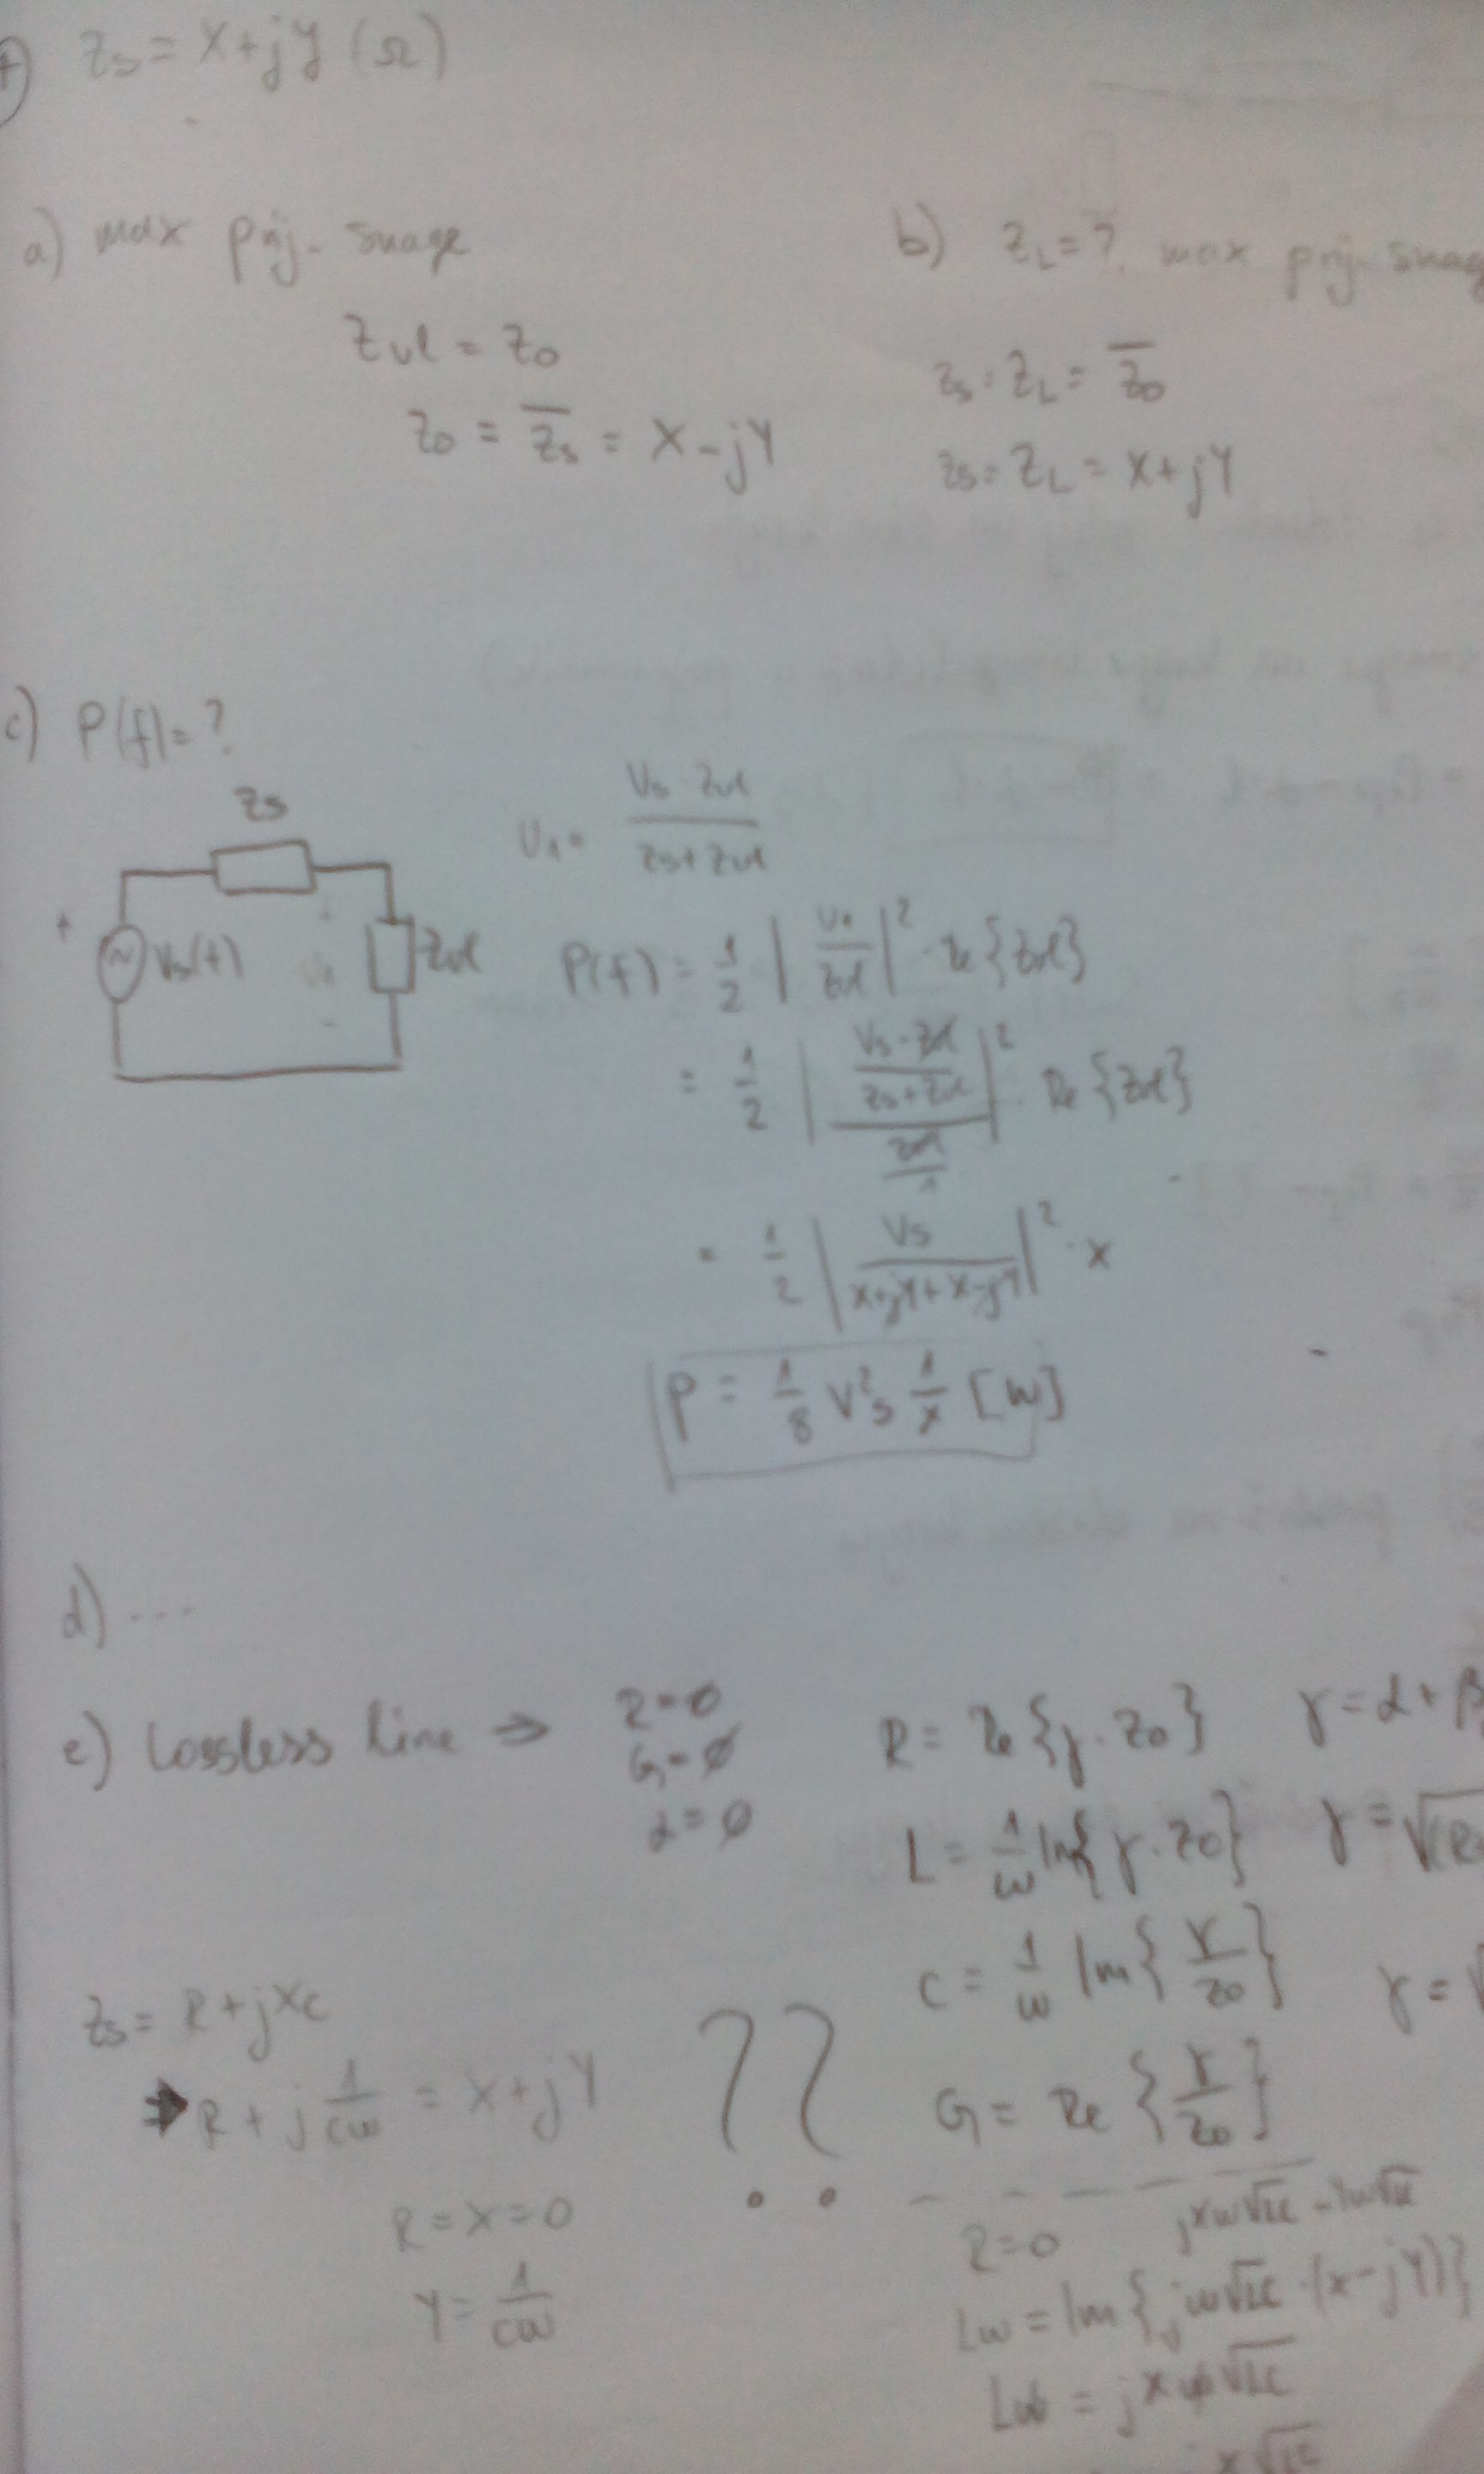 Zs = X+jY (Ω)
a) max prij. snage
Zul = Z0
Z0 = Z̅s̅ = X-jY
b) ZL=? max prij. snag
Zs = ZL = Z̅0̅
Zs = ZL = X+jY
c) P(f)=?
Zs
+
~
Vs(t)
Zul
-
U1 = Vs·Zul / Zs+Zul
P(f) = 1/2 | U1/Zul |² · Re{Zul}
= 1/2 | (Vs·Zul / Zs+Zul) / (Zul/1) |² · Re{Zul}
= 1/2 | Vs / X+jY+X-jY |² · X
P = 1/8 Vs² 1/X [W]
d) ...
e) Lossless line ⇒
R=0
G=Ø
α=Ø
R = Re{γ·Z0}
γ=α+β
L = 1/ω Im{γ·Z0}
γ=√(R
C = 1/ω Im{γ/Z0}
γ=√
G = Re{γ/Z0}
Zs = R+jXc
⇒ R + j 1/Cω = X+jY
??
R=X=0
Y = 1/Cω
R=0
jXω√LC - Yω√LC
Lω = Im{jω√LC·(X-jY)}
Lω = jXω√LC
X√LC